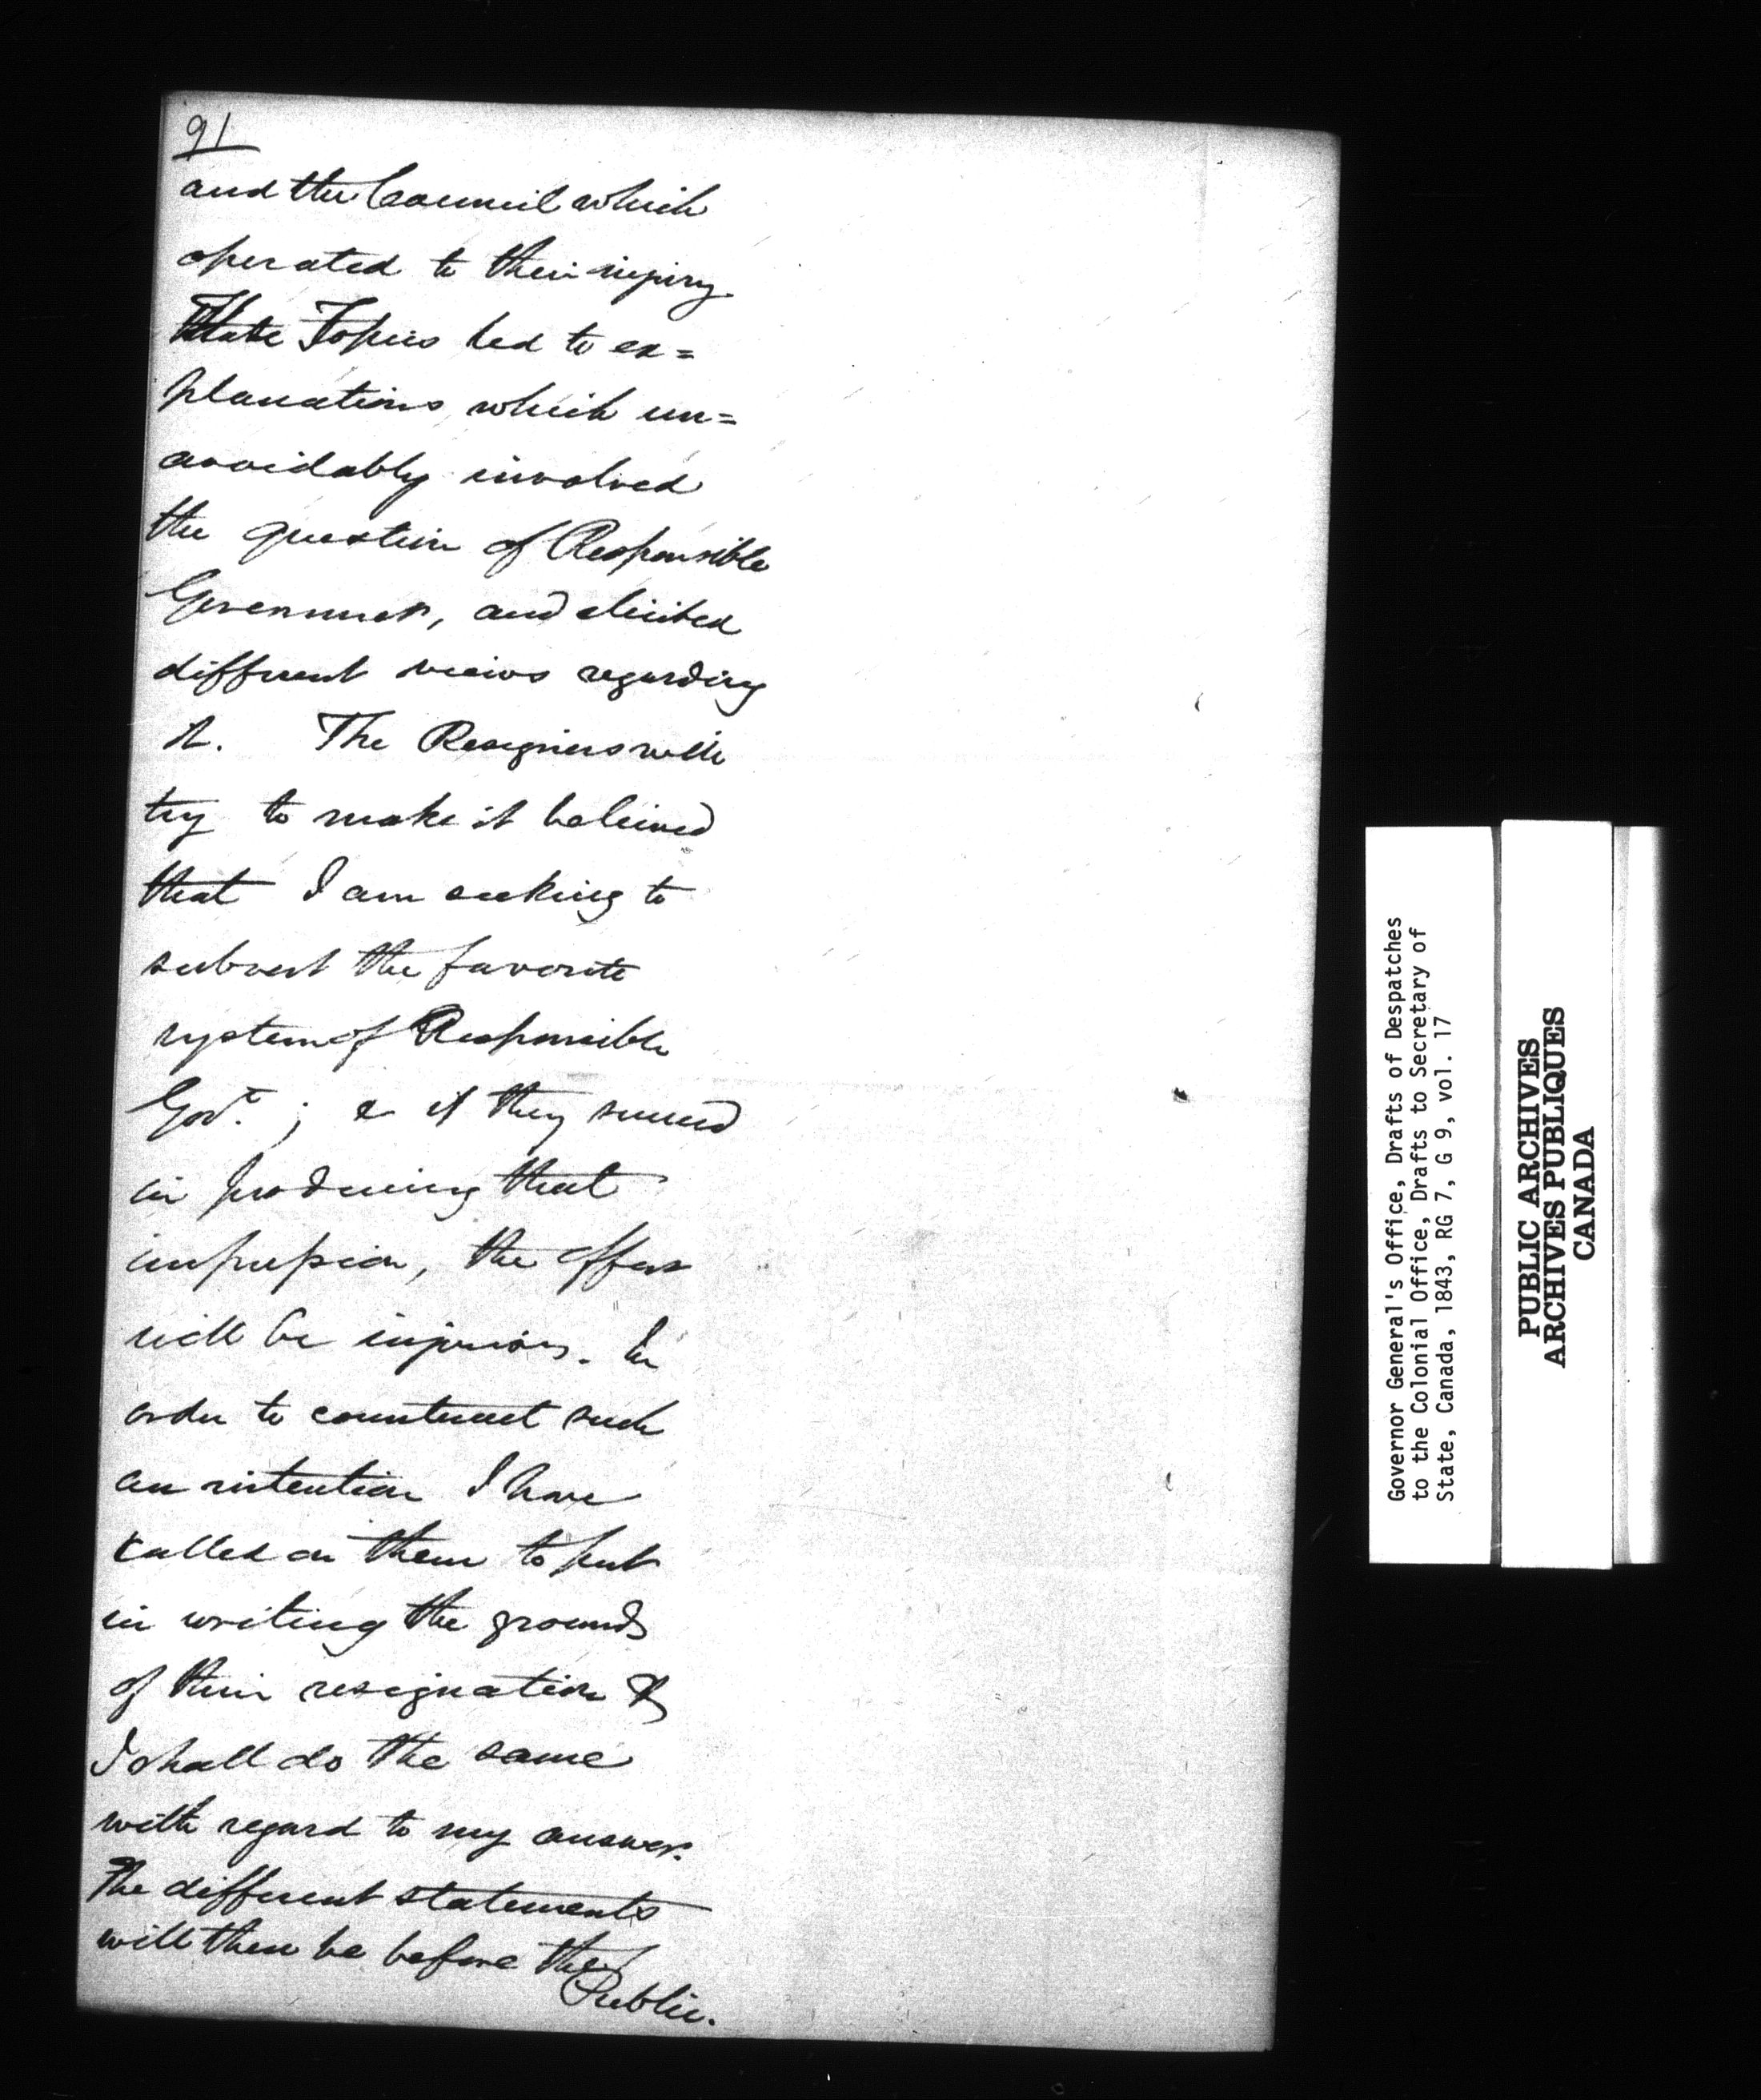 91
and the Council which
operated to their injury.
These Topics led to ex=
planations which un=
avoidably involved
the question of Responsible
Government, and elicited
different views regarding
it. The Resigners will
try to make it believed
that I am seeking to
subvert the favorite
system of Responsible
Govt. ; & if they succeed
in producing that
impression, the effect
will be injurious. In
order to counteract such
an intention I have
called on them to put
in writing the grounds
of their resignation &
I shall do the same
with regard to my answer.
The different statements
will then be before the
Public.
Governor General's Office, Drafts of Despatches
to the Colonial Office, Drafts to Secretary of
State, Canada, 1843, RG 7, G 9, vol. 17
PUBLIC ARCHIVES
ARCHIVES PUBLIQUES
CANADA